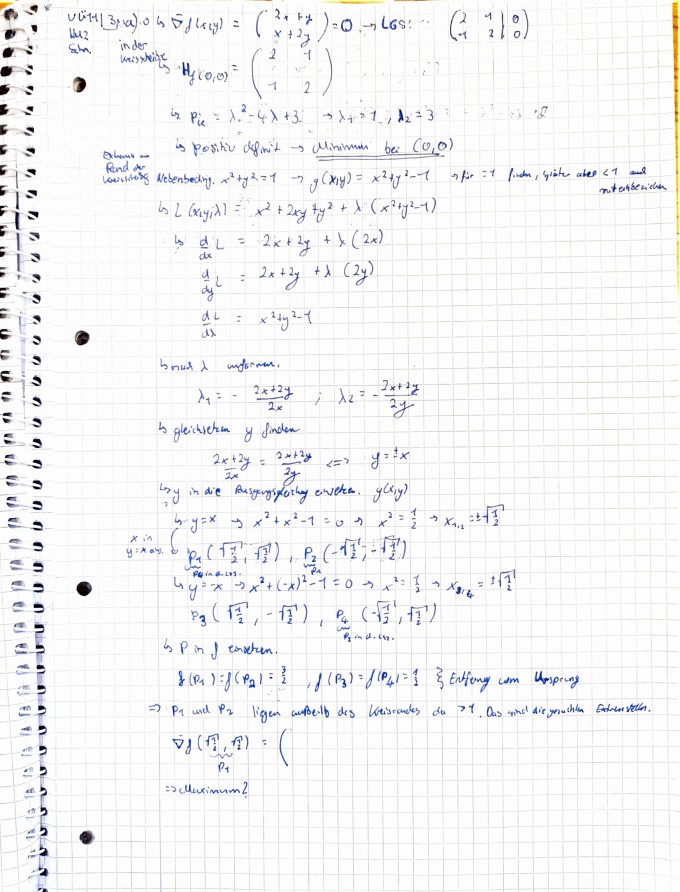 ∇f(x,y) = (2x+y, x+2y) = 0 → LGS: (2 1 | 0, 1 2 | 0)
in der Kreisscheibe
↳ H_f(0,0) = (2 1, 1 2)
↳ P = λ² - 4λ + 3 → λ₁ = 1, λ₂ = 3
↳ positiv definit → Minimum bei (0,0)
Extrema am Rand der Kreisscheibe
Nebenbeding. x²+y²=1 → g(x,y) = x²+y²-1 → für =1 finden, später aber <1 auch
↳ L(x,y,λ) = x² + 2xy + y² + λ(x²+y²-1)
↳ d/dx L = 2x + 2y + λ(2x)
d/dy L = 2x + 2y + λ(2y)
dL/dλ = x²+y²-1
↳ nach λ umformen.
λ₁ = - (2x+2y)/2x ; λ₂ = - (2x+2y)/2y
↳ gleichsetzen y finden
(2x+2y)/2x = (2x+2y)/2y ⟺ y = ±x
↳ y in die einsetzen. g(x,y)
↳ y=x → x²+x²-1 = 0 → x² = 1/2 → x₁,₂ = ±√(1/2)
x in y=x
P₁(√(1/2), √(1/2)), P₂(-√(1/2), -√(1/2))
↳ y=-x → x²+(-x)²-1 = 0 → x² = 1/2 → x₃,₄ = ±√(1/2)
P₃(√(1/2), -√(1/2)), P₄(-√(1/2), √(1/2))
↳ P in f einsetzen.
f(P₁) = f(P₂) = 3/2, f(P₃) = f(P₄) = 1/2 } Entfernung vom Ursprung
⇒ P₁ und P₂ liegen außerhalb des Kreisrandes da >1. Das sind die gesuchten Extremstellen.
∇f(√(1/2), √(1/2)) = (
P₁
⇒ Maximum?